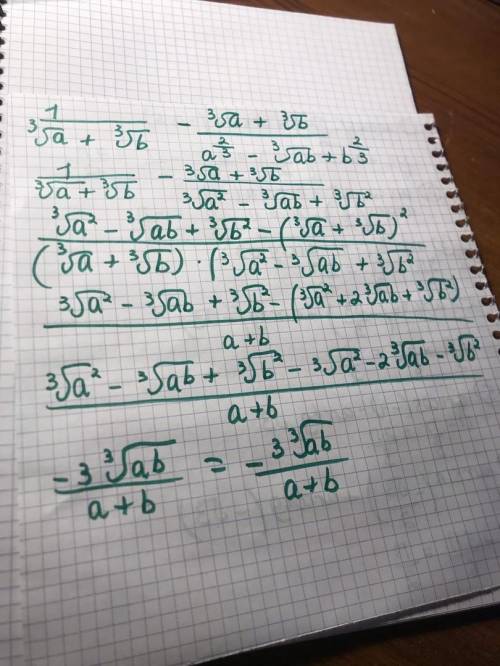 1/(³√a + ³√b) - (³√a + ³√b)/(a^(2/3) - ³√ab + b^(2/3))
1/(³√a + ³√b) - (³√a + ³√b)/(³√a² - ³√ab + ³√b²)
(³√a² - ³√ab + ³√b² - (³√a + ³√b)²)/((³√a + ³√b) · (³√a² - ³√ab + ³√b²
(³√a² - ³√ab + ³√b² - (³√a² + 2³√ab + ³√b²))/(a+b)
(³√a² - ³√ab + ³√b² - ³√a² - 2³√ab - ³√b²)/(a+b)
(-3³√ab)/(a+b) = -(3³√ab)/(a+b)